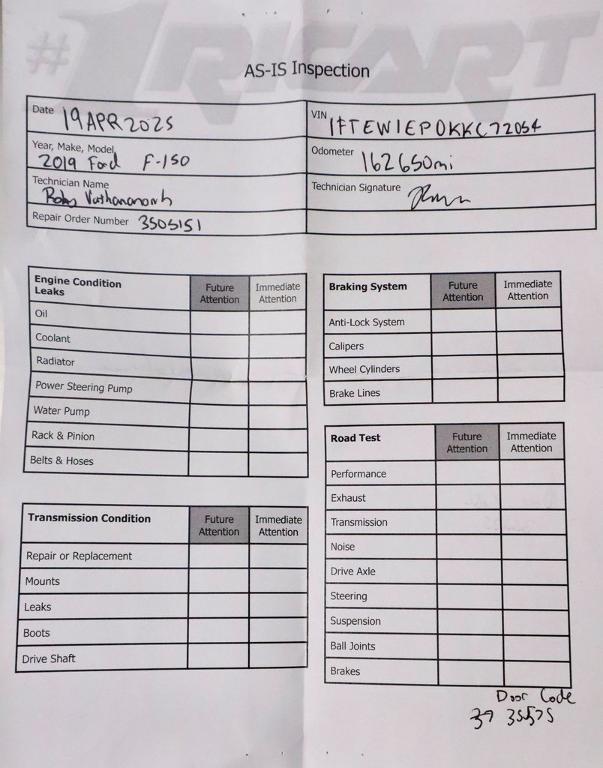 #1 RICART
AS-IS Inspection
Date 19 APR 2025
VIN 1FTEW1EP0KKC72054
Year, Make, Model 2019 Ford F-150
Odometer 162650mi
Technician Name
Technician Signature
Repair Order Number 3505151
Engine Condition Leaks Future Attention Immediate Attention
Oil
Coolant
Radiator
Power Steering Pump
Water Pump
Rack & Pinion
Belts & Hoses
Transmission Condition Future Attention Immediate Attention
Repair or Replacement
Mounts
Leaks
Boots
Drive Shaft
Braking System Future Attention Immediate Attention
Anti-Lock System
Calipers
Wheel Cylinders
Brake Lines
Road Test Future Attention Immediate Attention
Performance
Exhaust
Transmission
Noise
Drive Axle
Steering
Suspension
Ball Joints
Brakes
Door Code